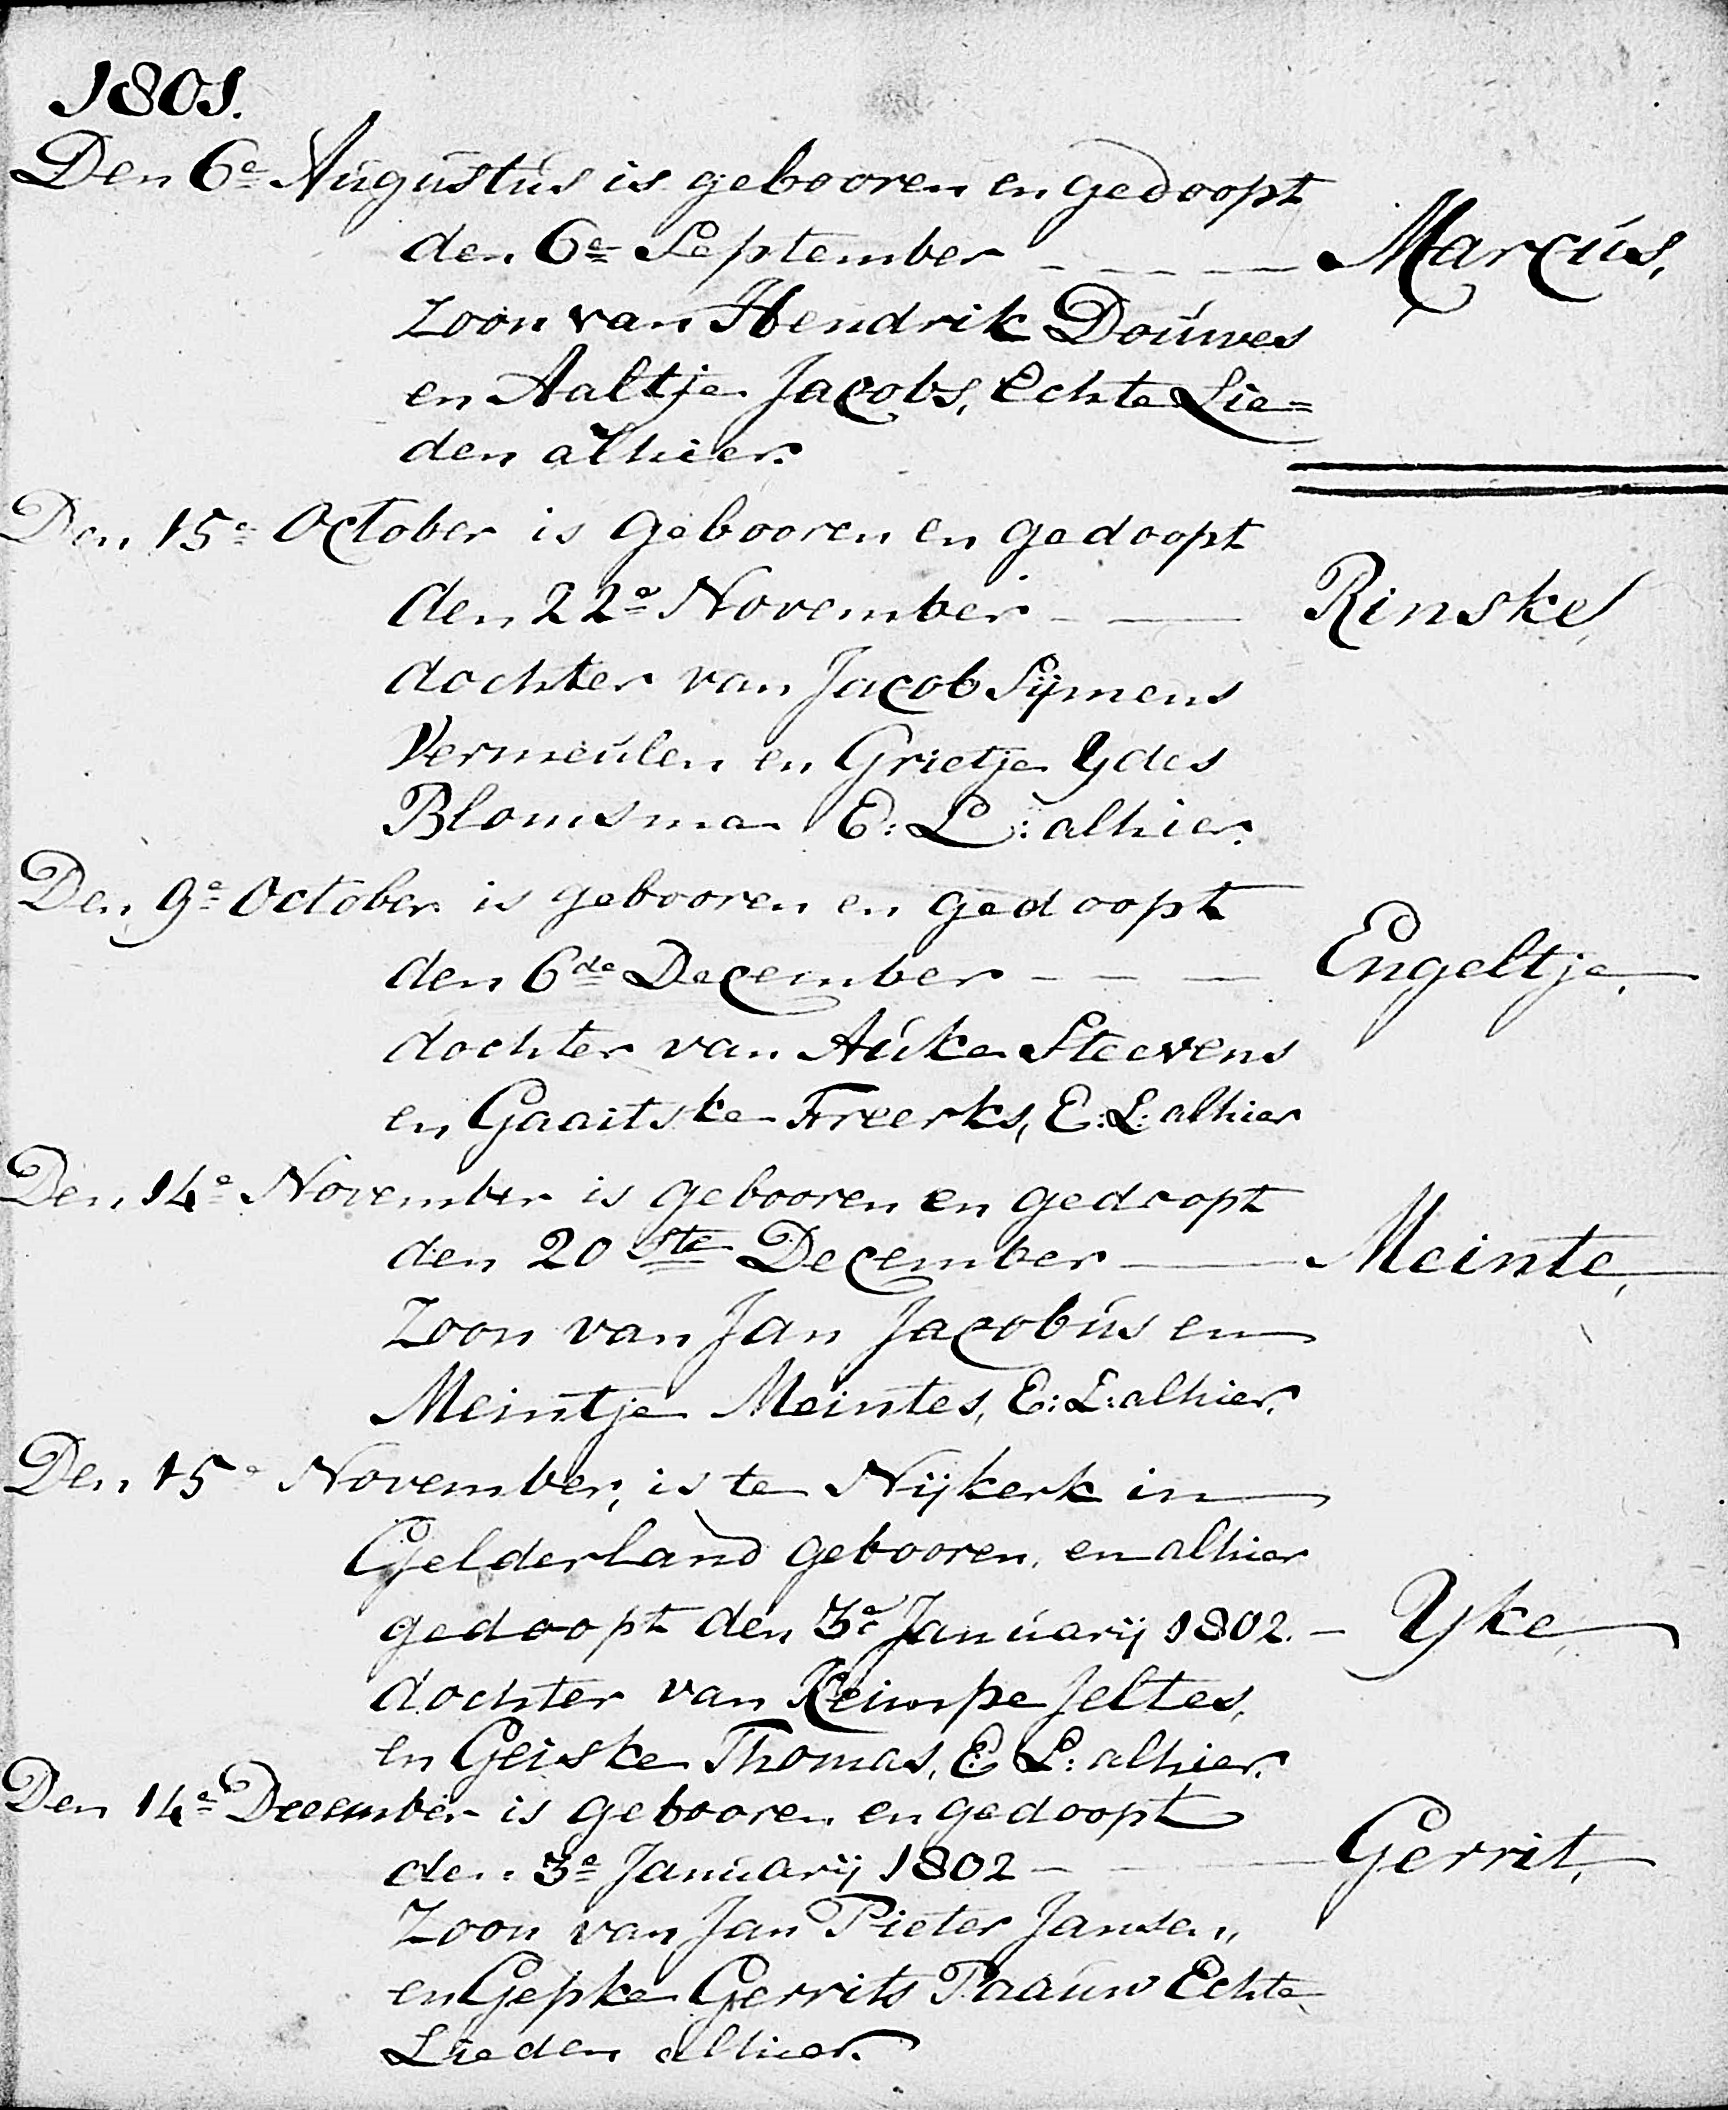 1801.
Den 6e Augustus is gebooren en gedoopt
den 6e September - - - - - Marcus,
zoon van Hendrik Douwes
en Aaltje Jacobs, Echte Lie=
den alhier.
Den 15e October is gebooren en gedoopt
den 22e November - - Rinske,
dochter van Jacob Sijmens
Vermeulen en Grietje Ydes
Blomsma E: L: alhier.
Den 9e October is gebooren en gedoopt
den 6de December - - - Engeltje,
dochter van Auke Steevens
en Gaaitske Freerks, E: L: alhier
Den 14e November is gebooren en gedoopt
den 20ste December - Meinte,
Zoon van Jan Jacobus en
Meintje Meintes, E: L: alhier.
Den 15e November, is te Nijkerk in
Gelderland gebooren, en alhier
gedoopt den 3e Januarij 1802. - Yke,
dochter van Reimpe Jeltes,
en Geiske Thomas, E: L: alhier.
Den 14e December is gebooren en gedoopt
den 3e Januarij 1802 - - - Gerrit,
Zoon van Jan Pieter Jansen,
en Gepke Gerrits Paauw Echte
Lieden alhier.